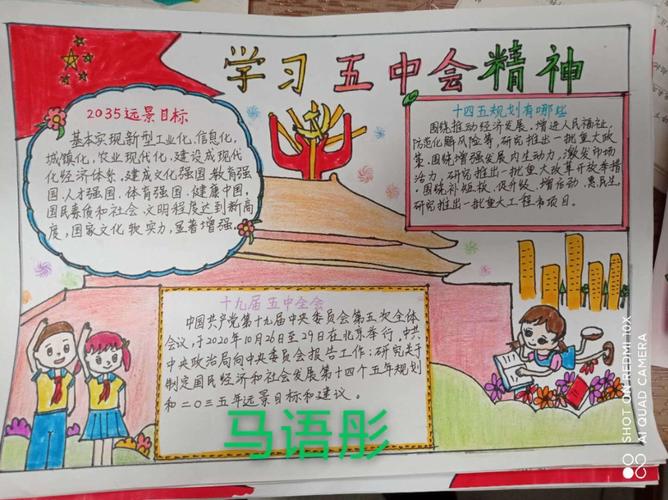 学习五中会精神
2035远景目标
基本实现新型工业化,信息化,
城镇化,农业现代化,建设成现代
化经济体系,建成文化强国,教育强
国,人才强国,体育强国,健康中国,
国民素质和社会文明程度达到新高
度,国家文化软实力,显著增强。
十四五规划有哪些
围绕推动经济发展,增进人民福祉,
防范化解风险等,研究推出一批重大政
策。围绕增强发展内生动力,激发市场
活力,研究推出一批重大改革开放举措
。围绕补短板,促升级,增后劲,惠民生,
研究推出一批重大工程和项目。
十九届五中全会
中国共产党第十九届中央委员会第五次全体
会议,于2020年10月26日至29日在北京举行。中共
中央政治局向中央委员会报告工作;研究关于
制定国民经济和社会发展第十四个五年规划
和二〇三五年远景目标和建议。
马语彤
SHOT ON REDMI 10X
AI QUAD CAMERA